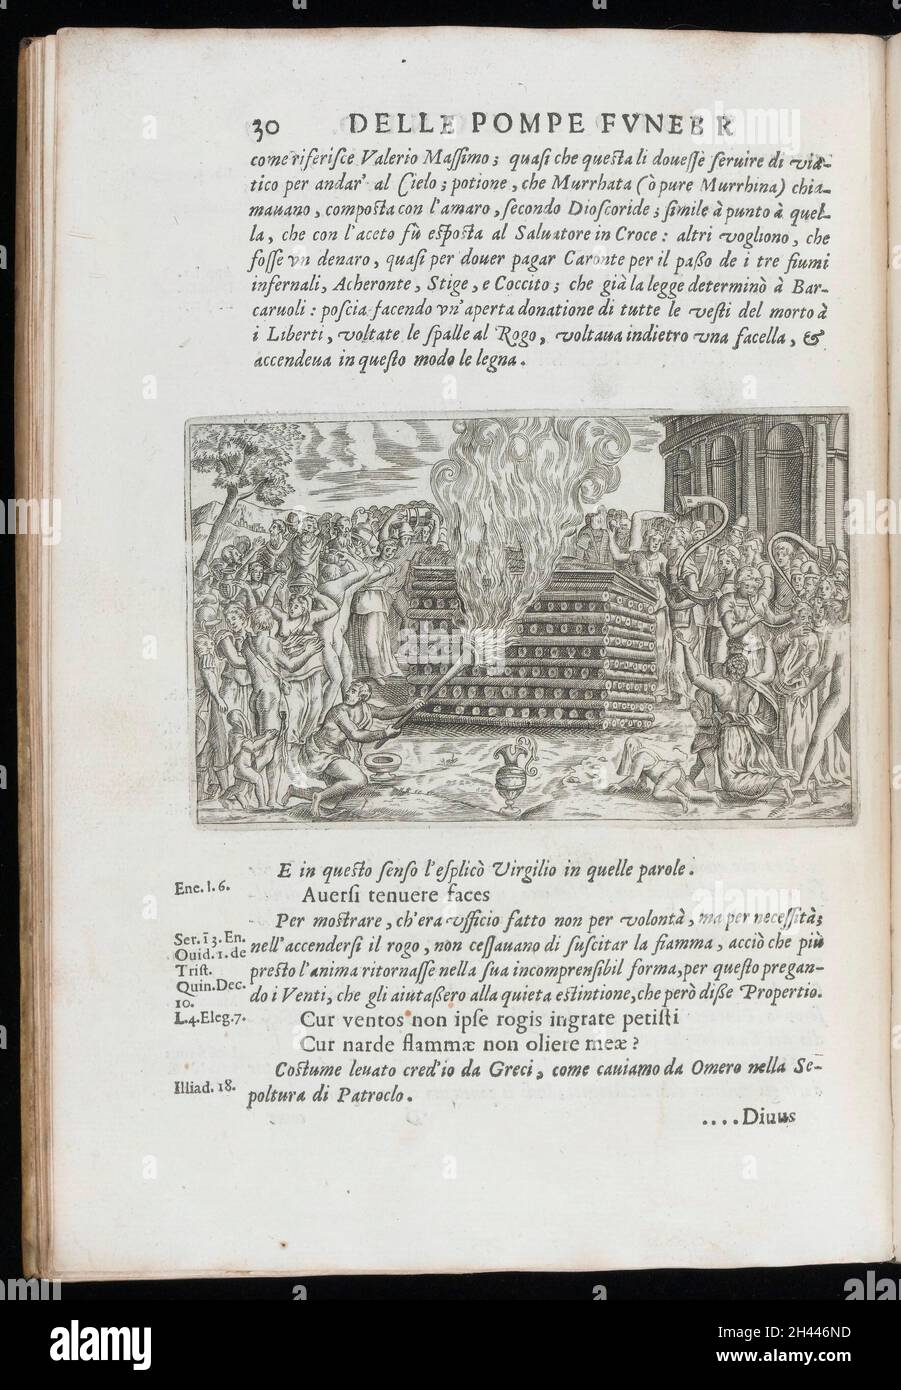 30 DELLE POMPE FVNEBR
come riferiſce Valerio Maſſimo; quaſi che queſta li doueſſe ſeruire di via-
tico per andar' al Cielo; potione, che Murrhata (ò pure Murrhina) chia-
mauano, compoſta con l'amaro, ſecondo Dioſcoride; ſimile à punto à quel-
la, che con l'aceto fù eſpoſta al Saluatore in Croce: altri vogliono, che
foſſe vn denaro, quaſi per douer pagar Caronte per il paſſo de i tre fiumi
infernali, Acheronte, Stige, e Coccito; che già la legge determinò à Bar-
caruoli: poſcia facendo vn'aperta donatione di tutte le veſti del morto à
i Liberti, voltate le ſpalle al Rogo, voltaua indietro vna facella, &
accendeua in queſto modo le legna.
E in queſto ſenſo l'eſplicò Virgilio in quelle parole.
Ene. l. 6.
Auerſi tenuere faces
Per moſtrare, ch'era vfficio fatto non per volontà, ma per neceſſità;
Ser. i3. En.
nell'accenderſi il rogo, non ceſſauano di ſuſcitar la fiamma, acciò che più
Ouid. 1. de
Triſt.
preſto l'anima ritornaſſe nella ſua incomprenſibil forma, per queſto pregan-
Quin. Dec.
10.
do i Venti, che gli aiutaſſero alla quieta eſtintione, che però diſſe Propertio.
L. 4. Eleg. 7.
Cur ventos non ipſe rogis ingrate petiſti
Cur narde flammæ non oliere meæ?
Coſtume leuato cred'io da Greci, come cauiamo da Omero nella Se-
Illiad. 18.
poltura di Patroclo.
....Diuus
alamy
a
Image ID: 2H446ND
www.alamy.com